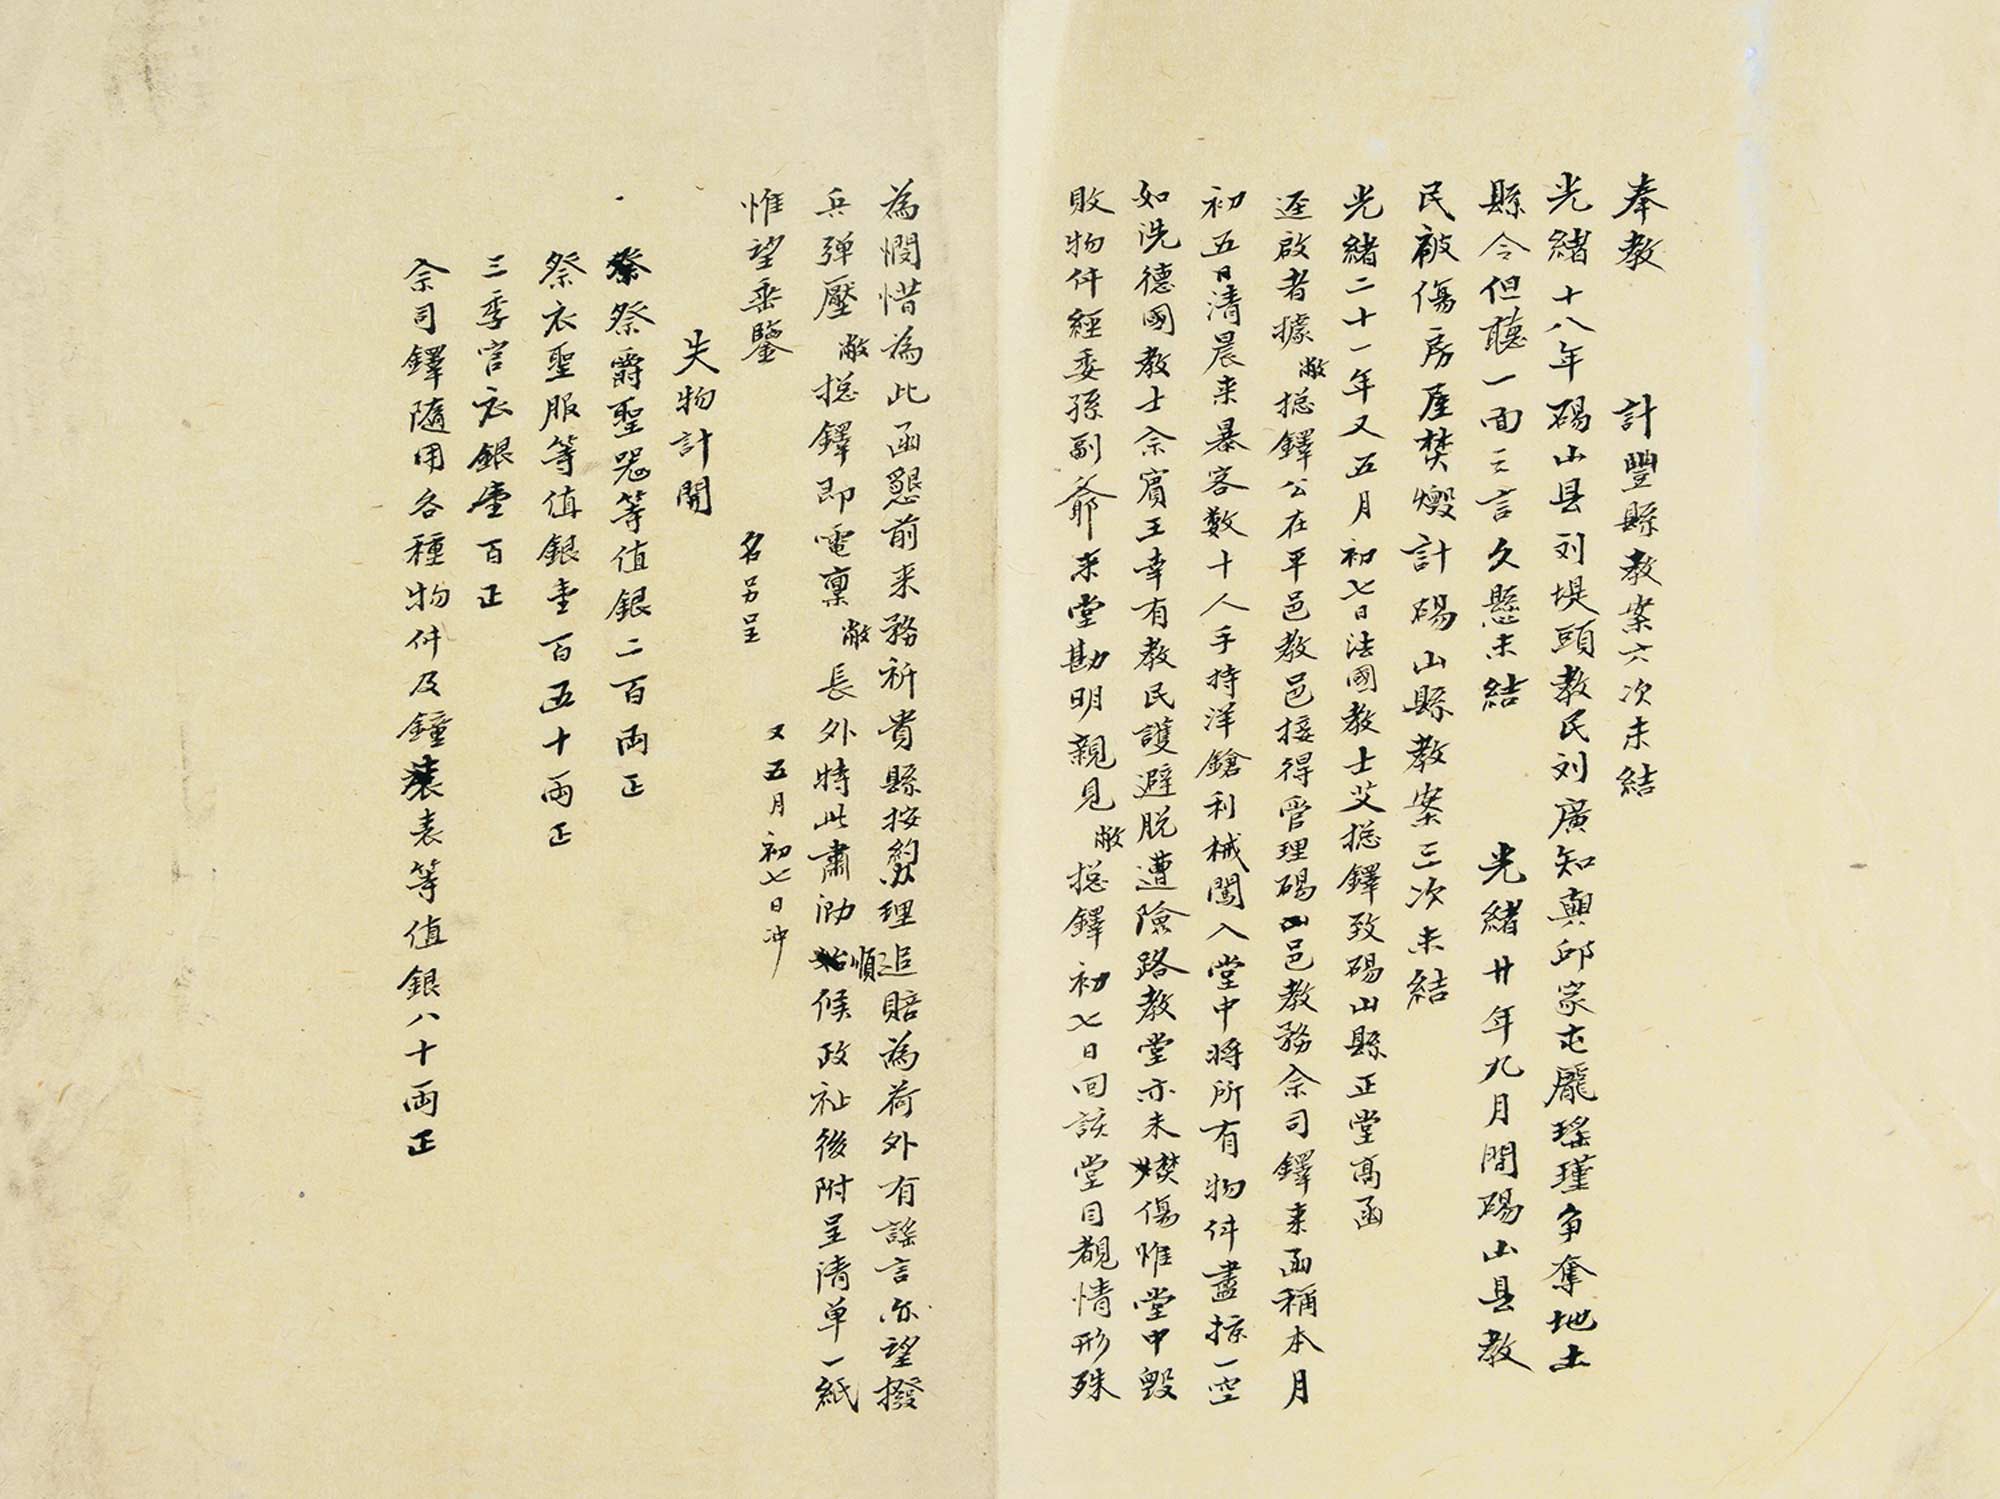 奉教　計豐縣教案六次未結
光緒十八年碭山县刘堤頭教民刘廣知與邱家屯龐瑤瑾爭奪地土
縣令但聽一面之言久懸未結　光緒廿年九月間碭山县教
民被傷房屋焚燬計碭山縣教案三次未結
光緒二十一年又五月初七日法國教士艾搃鐸致碭山縣正堂高函
逕啟者據敝搃鐸公在平邑教邑接得管理碭山邑教務佘司鐸来函稱本月
初五日清晨来暴客数十人手持洋鎗利械闖入堂中将所有物件盡掠一空
如洗德國教士佘賓王幸有教民護避脱遭險路教堂亦未燓傷惟堂中毀
敗物件經委孫副爺来堂勘明親見敝搃鐸初七日回該堂目覩情形殊
為憫惜為此函懇前来務祈貴縣按約办理追賠為荷外有謡言亦望撥
兵弹壓敝搃鐸即電禀敝長外特此肅泐順候政祉後附呈清单一紙
惟望垂鑒　名另呈　又五月初七日冲
失物計開
祭爵聖器等值銀二百両正
祭衣聖服等值銀壹百五十両正
三季官衣銀壹百正
佘司鐸隨用各種物件及鐘表等值銀八十両正